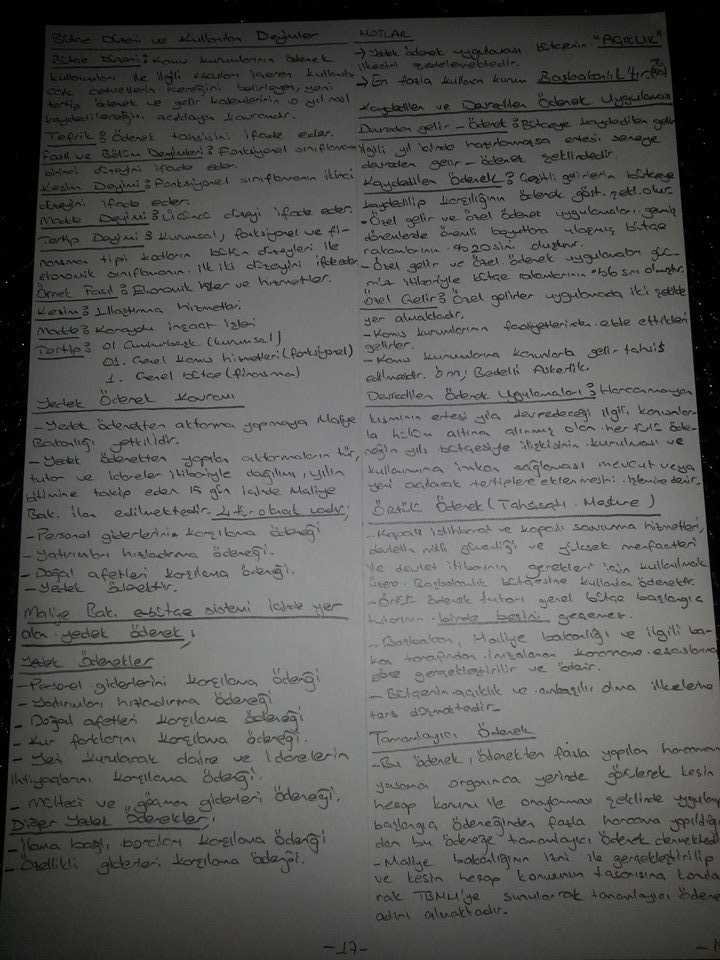 Bütçe Düzeni ve Kullanılan Deyimler
Bütçe Düzeni: Kamu kurumlarının ödenek
kullanımları ile ilgili esasları içeren
cetvellerin içeriğini belirleyen, yeni
tertip ödenek ve gelir kalemlerinin o yıl nasıl
kaydedileceğini açıklayan kavramdır.
Tefrik: Ödenek tahsisini ifade eder.
Fasıl ve Bölüm Deyimleri: Fonksiyonel sınıflamanın
birinci düzeyini ifade eder.
Kesim Deyimi: Fonksiyonel sınıflamanın ikinci
düzeyini ifade eder.
Madde Deyimi: Üçüncü düzeyi ifade eder.
Tertip Deyimi: Kurumsal, fonksiyonel ve fi-
nansman tipi kodların bütün düzeyleri ile
ekonomik sınıflamanın ilk iki düzeyini ifade eder.
Örnek Fasıl: Ekonomik işler ve hizmetler.
Kesim: Ulaştırma hizmetleri
Madde: Karayolu inşaat işleri
Tertip: 01 Cumhurbaşk. (kurumsal)
01. Genel kamu hizmetleri (fonksiyonel)
1. Genel bütçe (finansman)
Yedek Ödenek Kavramı
- Yedek ödenekten aktarma yapmaya Maliye
Bakanlığı yetkilidir.
- Yedek ödenekten yapılan aktarmaların tür,
tutar ve idareler itibariyle dağılımı, yılın
bitimine takip eden 15 gün içinde Maliye
Bak. ilan edilmektedir. 4 tür olarak vardır;
- Personel giderlerini karşılama ödeneği
- Yatırımları hızlandırma ödeneği.
- Doğal afetleri karşılama ödeneği.
- Yedek ödenektir.
Maliye Bak. e-bütçe sistemi içinde yer
alan yedek ödenek;
Yedek Ödenekler
- Personel giderlerini karşılama ödeneği
- Yatırımları hızlandırma ödeneği
- Doğal afetleri karşılama ödeneği
- Kur farklarını karşılama ödeneği.
- Yeni kurulacak daire ve idarelerin
ihtiyaçlarını karşılama ödeneği.
- Mülteci ve göçmen giderleri ödeneği.
Diğer Yedek Ödenekler;
- İlama bağlı borçları karşılama ödeneği
- Özellikli giderleri karşılama ödeneği.
NOTLAR
→ Yedek ödenek uygulaması bütçenin "AÇIKLIK"
ilkesini zedelemektedir.
→ En fazla kullanan kurum Başbakanlık'tır.
Kaydedilen ve Devredilen Ödenek Uygulaması
Devreden gelir - Ödenek: Bütçeye kaydedilen gelir
ilgili yıl içinde harcanmazsa ertesi seneye
devreden gelir - ödenek şeklindedir
Kaydedilen Ödenek: Çeşitli gelirlerin bütçeye
kaydedilip karşılığının ödenek göst. şekl. olur.
- Özel gelir ve özel ödenek uygulamaları geçmiş
dönemlerde önemli boyutlara ulaşmış bütçe
rakamlarının %20'sini oluştur.
- Özel gelir ve özel ödenek uygulamaları gü-
müz itibariyle bütçe rakamlarının %6 sını oluştur.
Özel Gelir: Özel gelirler uygulamada iki şekilde
yer almaktadır.
- Kamu kurumlarının faaliyetlerinden elde ettikleri
gelirler.
- Kamu kurumlarına kanunlarla gelir tahsis
edilmesidir. Örn; Bedelli Askerlik.
Devredilen Ödenek Uygulamaları: Harcanmayan
kısmının ertesi yıla devredeceği ilgili kanunlar-
la hüküm altına alınmış olan her türlü öde-
neğin yılı bütçesiyle ilişkisinin kurulması ve
kullanımına imkan sağlaması mevcut veya
yeni açılacak tertiplere eklenmesi işlemine denir.
Örtülü Ödenek (Tahsisatı Mesture)
- Kapalı istihbarat ve kapalı savunma hizmetleri,
devletin milli güvenliği ve yüksek menfaatleri
ve devlet itibarının gerekleri için kullanılmak
üzere Başbakanlık bütçesine kullanılan ödenektir.
- Örtülü ödenek tutarı genel bütçe başlangıç
tutarının binde beşini geçemez.
- Başbakan, Maliye bakanlığı ve ilgili ba-
kan tarafından imzalanan kararname esaslarına
göre gerçekleştirilir ve ödenir.
- Bütçenin açıklık ve anlaşılır olma ilkelerine
ters düşmektedir.
Tamamlayıcı Ödenek
- Bu ödenek, ödenekten fazla yapılan harcamanın
yasama organınca yerinde görülerek kesin
hesap kanunu ile onaylanması şeklinde uygulanır
başlangıç ödeneğinden fazla harcama yapıldığın-
dan bu ödeneğe tamamlayıcı ödenek denmektedir.
- Maliye bakanlığının izni ile gerçekleştirilip
ve kesin hesap kanununun tasarısına konula-
rak TBMM'ye sunularak tamamlayıcı ödenek
adını almaktadır.
-17-